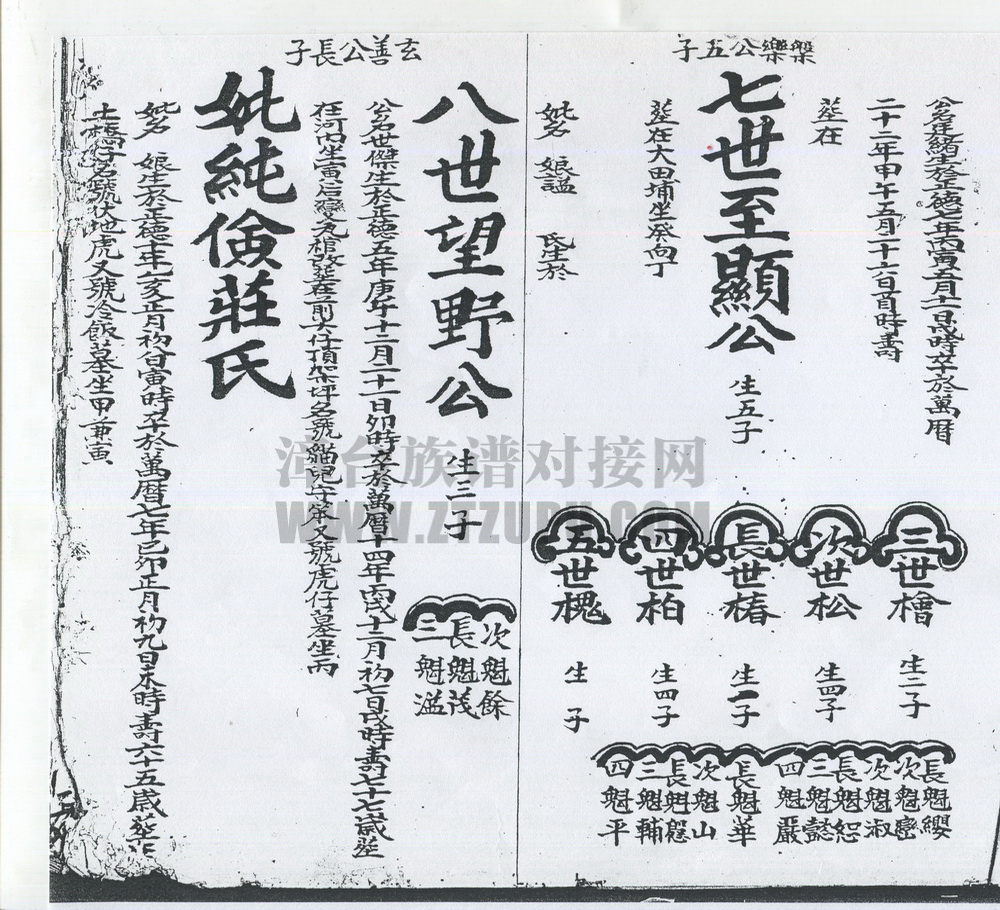 槃樂公五子
公名廷緒生於正德七年丙寅五月十一日戌時卒於萬曆
二十二年甲午五月二十六日酉時壽
葬在
七世至顯公 生五子
葬在大田埔坐癸向丁
妣名 娘謚 氏生於
三世檜 生二子
次世松 生四子
長世椿 生一子
四世柏 生四子
五世槐 生 子
長魁纓
次魁巒
次魁淑
長魁恕
三魁懿
四魁嚴
長魁華
次魁山
長魁
三魁輔
四魁平
玄善公長子
八世望野公 生三子
公名世傑生於正德五年庚午十二月二十一日卯時卒於萬曆十四年丙戌十二月初七日戌時壽七十七歲葬
在河內坐寅后 又 棺改葬在前大仔頂架坪名號貓兒 又號虎仔墓坐丙
次魁餘
長魁茂
三魁溢
妣純儉莊氏
妣名 娘生於正德十年乙亥正月初 日寅時卒於萬曆七年己卯正月初九日未時壽六十五歲葬在
土橋仔名號伏地虎又號冷飯墓坐甲兼寅
漳台族谱对接网
WWW.ZTZUPU.COM